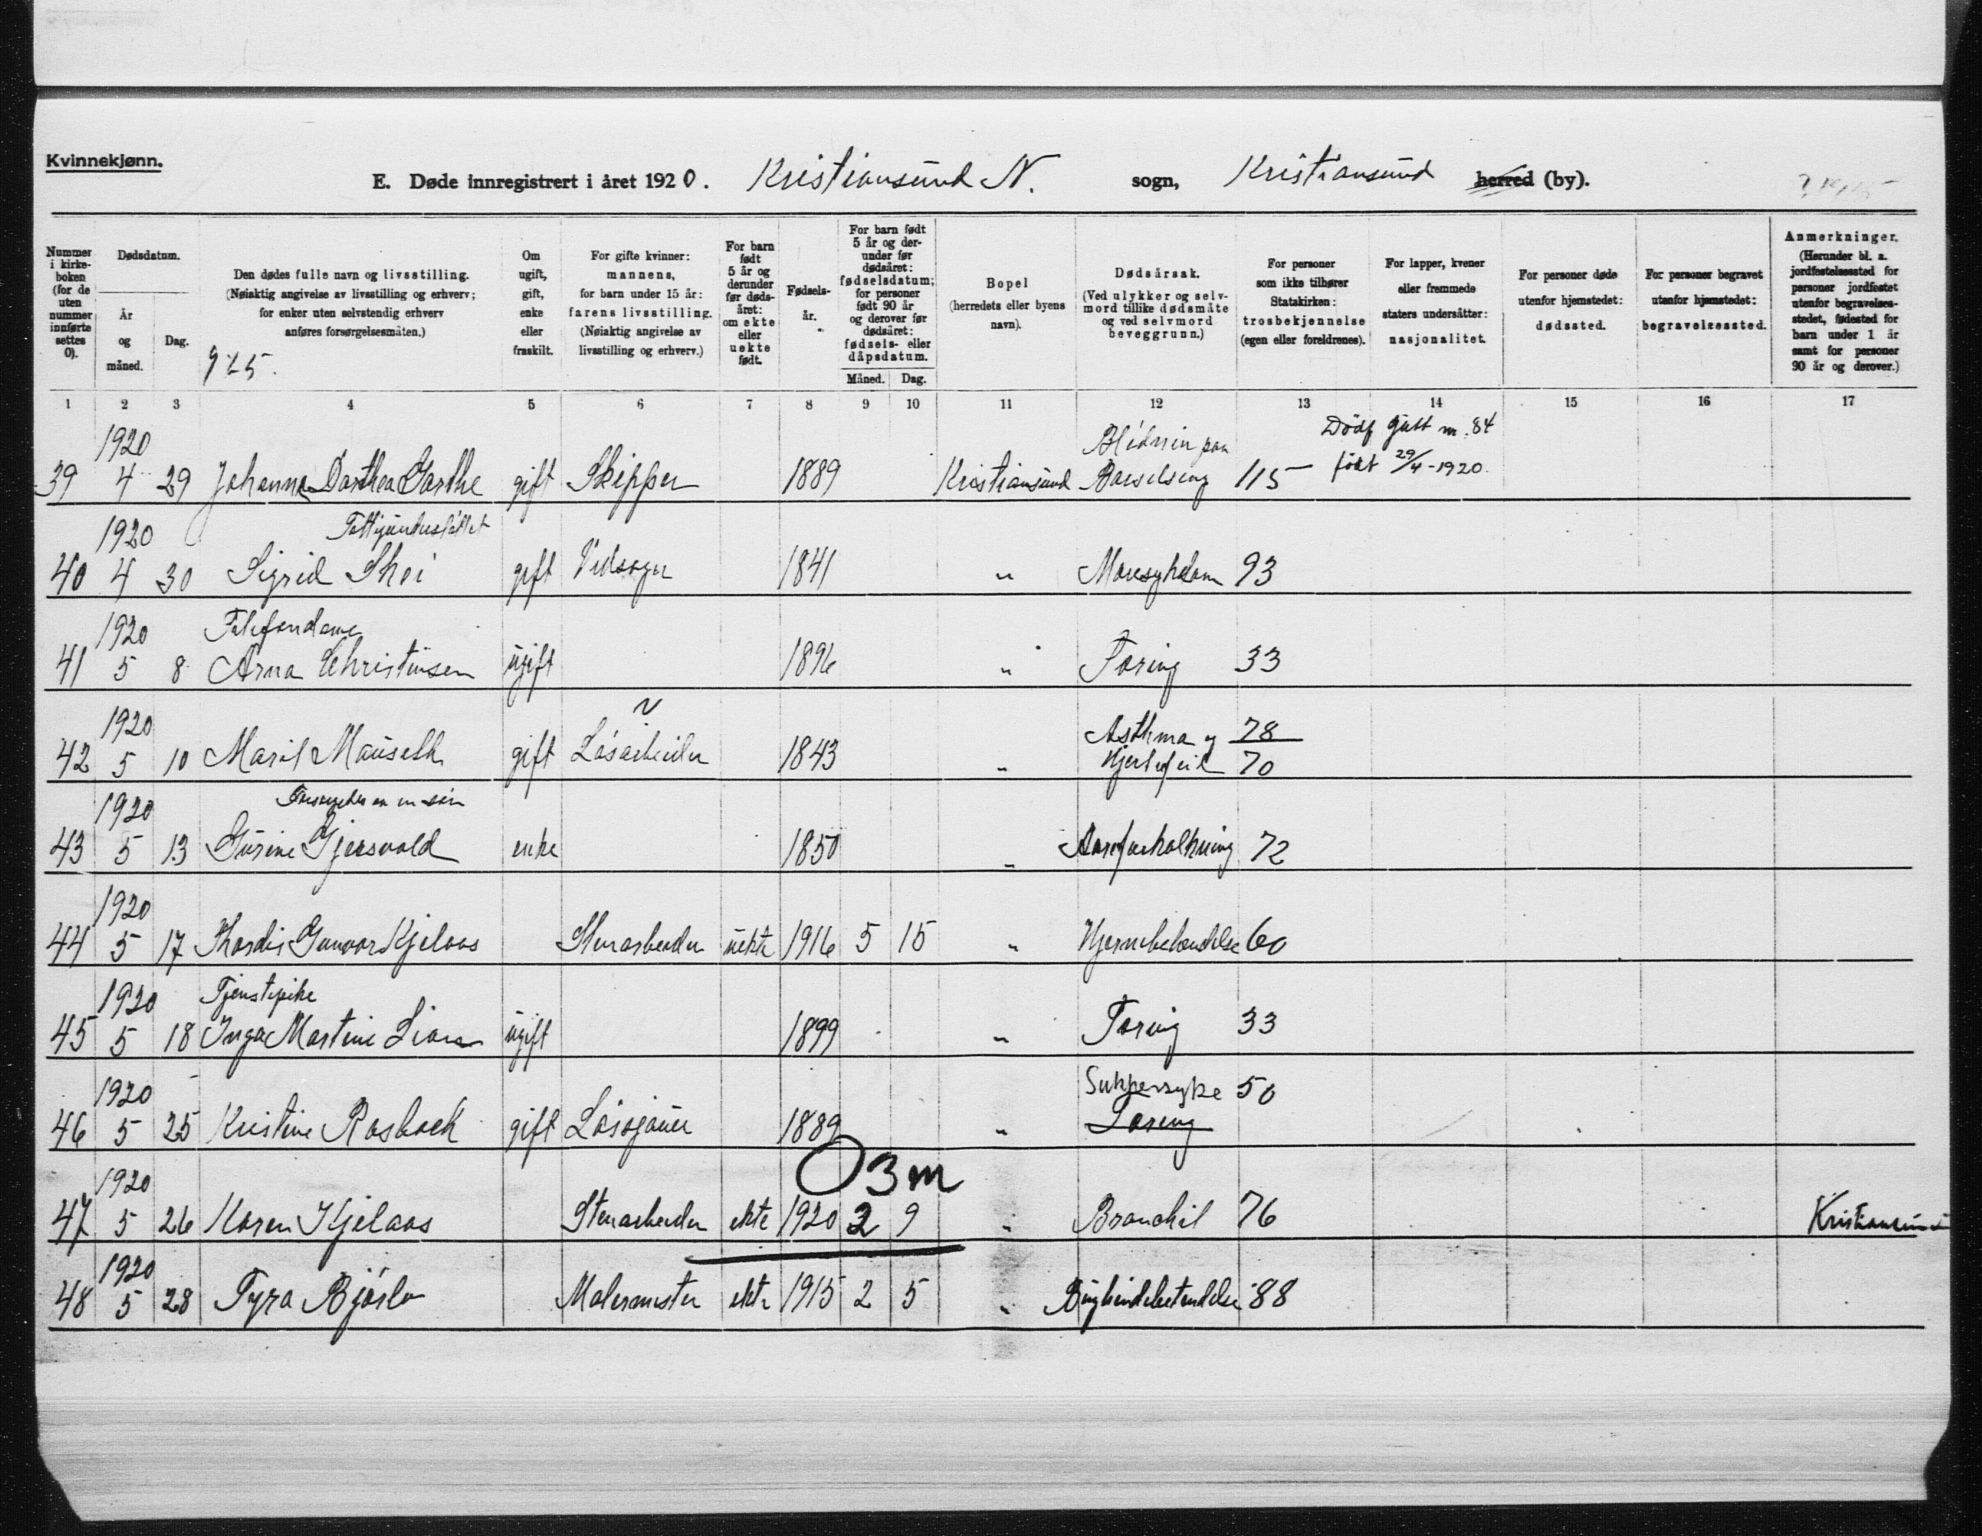 Kvinnekjønn.
E. Døde innregistrert i året 1920. Kristiansund N. sogn, Kristiansund herred (by).
Nummer i kirkeboken (for de uten nummer innførte settes 0).
Dødsdatum.
År og måned.
Dag.
Den dødes fulle navn og livsstilling.
(Nøiaktig angivelse av livsstilling og erhverv; for enker uten selvstendig erhverv anføres forsørgelsesmåten.)
925.
Om ugift, gift, enke eller fraskilt.
For gifte kvinner: mannens, for barn under 15 år: farens livsstilling.
(Nøiaktig angivelse av livsstilling og erhverv.)
For barn født 5 år og derunder før dødsåret: om ekte eller uekte født.
Fødselsår.
For barn født 5 år og derunder før dødsåret: fødselsdatum; for personer født 90 år og derover før dødsåret: fødsels- eller dåpsdatum.
Måned. Dag.
Bopel
(herredets eller byens navn).
Dødsårsak.
(Ved ulykker og selvmord tillike dødsmåte og ved selvmord beveggrunn.)
For personer som ikke tilhører Statskirken: trosbekjennelse (egen eller foreldrenes).
For lapper, kvener eller fremmede staters undersåtter: nasjonalitet.
For personer døde utenfor hjemstedet: dødssted.
For personer begravet utenfor hjemstedet: begravelsessted.
Anmerkninger.
(Herunder bl. a. jordfestelsessted for personer jordfestet utenfor begravelsesstedet, fødested for barn under 1 år samt for personer 90 år og derover.)
1 2 3 4 5 6 7 8 9 10 11 12 13 14 15 16 17
1920 Dödf gutt nr. 84
39 4 29 Johanna Dorthea Garthe gift Skipper 1889 Kristiansund Barselseng 115 födt 29/4-1920.
1920
40 4 30 Sigrid gift 1841 " 93
1920 Telefondame
41 5 8 Arna Christensen ugift 1896 " Tæring 33
1920 Asthma og 78
42 5 10 Marit gift Løsarbeider 1843 " Hjertefeil 70
1920 Forsørgedes av en søn
43 5 13 Gurine Gjersvold enke 1850 " Aareforkalkning 72
1920
44 5 17 Thordis Gunvor Kjelaas Stenarbeider uekte 1916 5 15 " Hjernebetændelse 60
1920 Tjenestepike
45 5 18 Inga Martine ugift 1899 " Tæring 33
1920 Sukkersyke 50
46 5 25 Kristine Rosbach gift 1889 " Tæring
1920 O 3 m
47 5 26 Karen Kjelaas Stenarbeider ekte 1920 2 9 " Bronchit 76 Kristiansund
1920
48 5 28 Tyra Malermester ekte 1915 2 5 " Bughindebetendelse 88